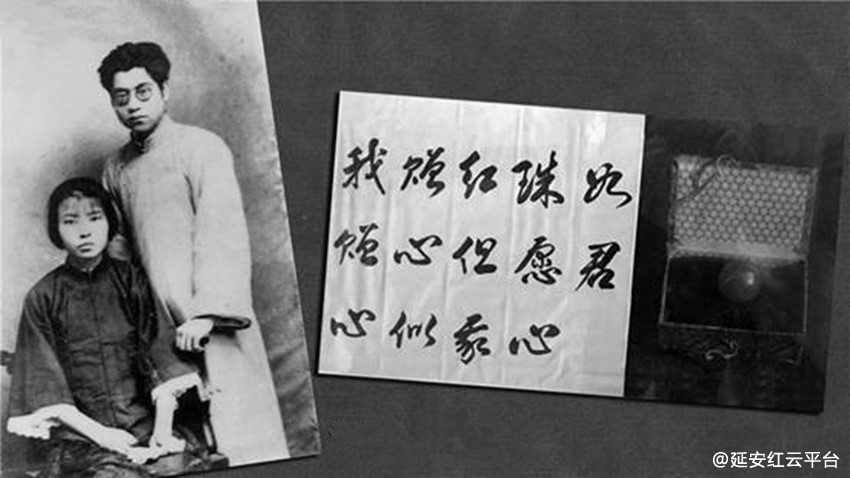 我赠红珠如
赠心但愿君
心似我心
@延安红云平台